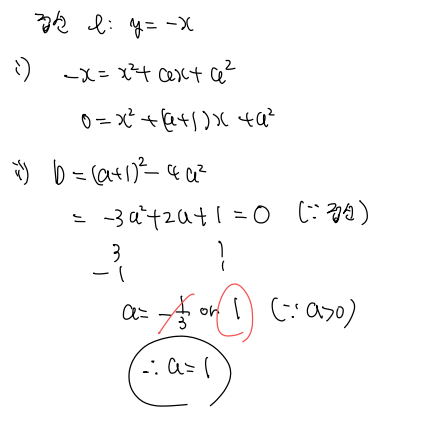 접선 l: y=-x
i) -x=x²+ax+a²
0=x²+(a+1)x+a²
ii) D=(a+1)²-4a²
= -3a²+2a+1=0 (∵접선)
3 1
-1 1
a=-1/3 or 1 (∵a>0)
∴a=1